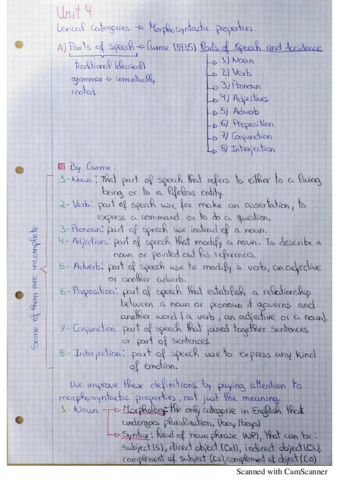 Unit 4
Lexical categories → Morphosyntactic properties.
A) Parts of speech → Curme (1935) Parts of Speech and Accidence
traditional
grammar → semantically
1) Noun
2) Verb
3) Pronoun
4) Adjectives
5) Adverb
6) Preposition
7) Conjunction
8) Interjection
By Curme:
1- Noun: That part of speech that refers to either to a living
being or to a lifeless entity.
2- Verb: part of speech use for make an assertation, to
express a command or to do a question.
3- Pronoun: part of speech use instead of a noun.
4- Adjectives: part of speech that modify a noun. To describe a
noun or pointed out his references.
5- Adverb: part of speech use to modify a verb, an adjective
or another adverb.
6- Preposition: part of speech that establish a relationship
between a noun or pronoun it governs and
another word (a verb, an adjective or a noun).
7- Conjunction: part of speech that joined together sentences
or part of sentences.
8- Interjection: part of speech use to express any kind
of emotion.
Some of them are incomplete
We improve these definitions by paying attention to
morphosyntactic properties, not just the meaning.
1- Noun → Morphology: the only categorie in English that
undergoes pluralisation. (boy/boys)
→ Syntax: head of noun phrase (NP), that can be:
subject (S), direct object (Od), indirect object (Oi),
complement of subject (Cs), complement of object (Co)
Scanned with CamScanner